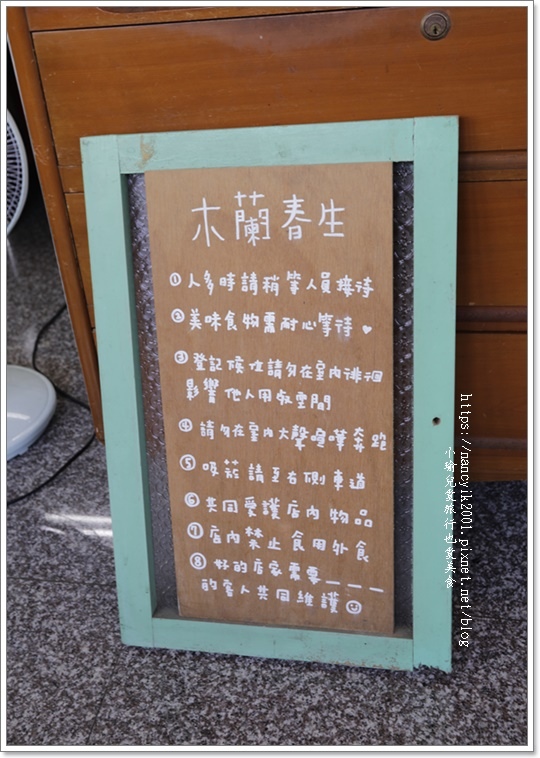 木蘭春生
①人多時請稍等人員接待
②美味食物需耐心等待♥
③登記候位請勿在室內徘徊
影響他人用餐空間
④請勿在室內大聲喧嘩奔跑
⑤吸菸請至右側車道
⑥共同愛護店內物品
⑦店內禁止食用外食
⑧好的店家需要___
的客人共同維護☺
https://nancylk2001.pixnet.net/blog
小瑜兒愛旅行也愛美食